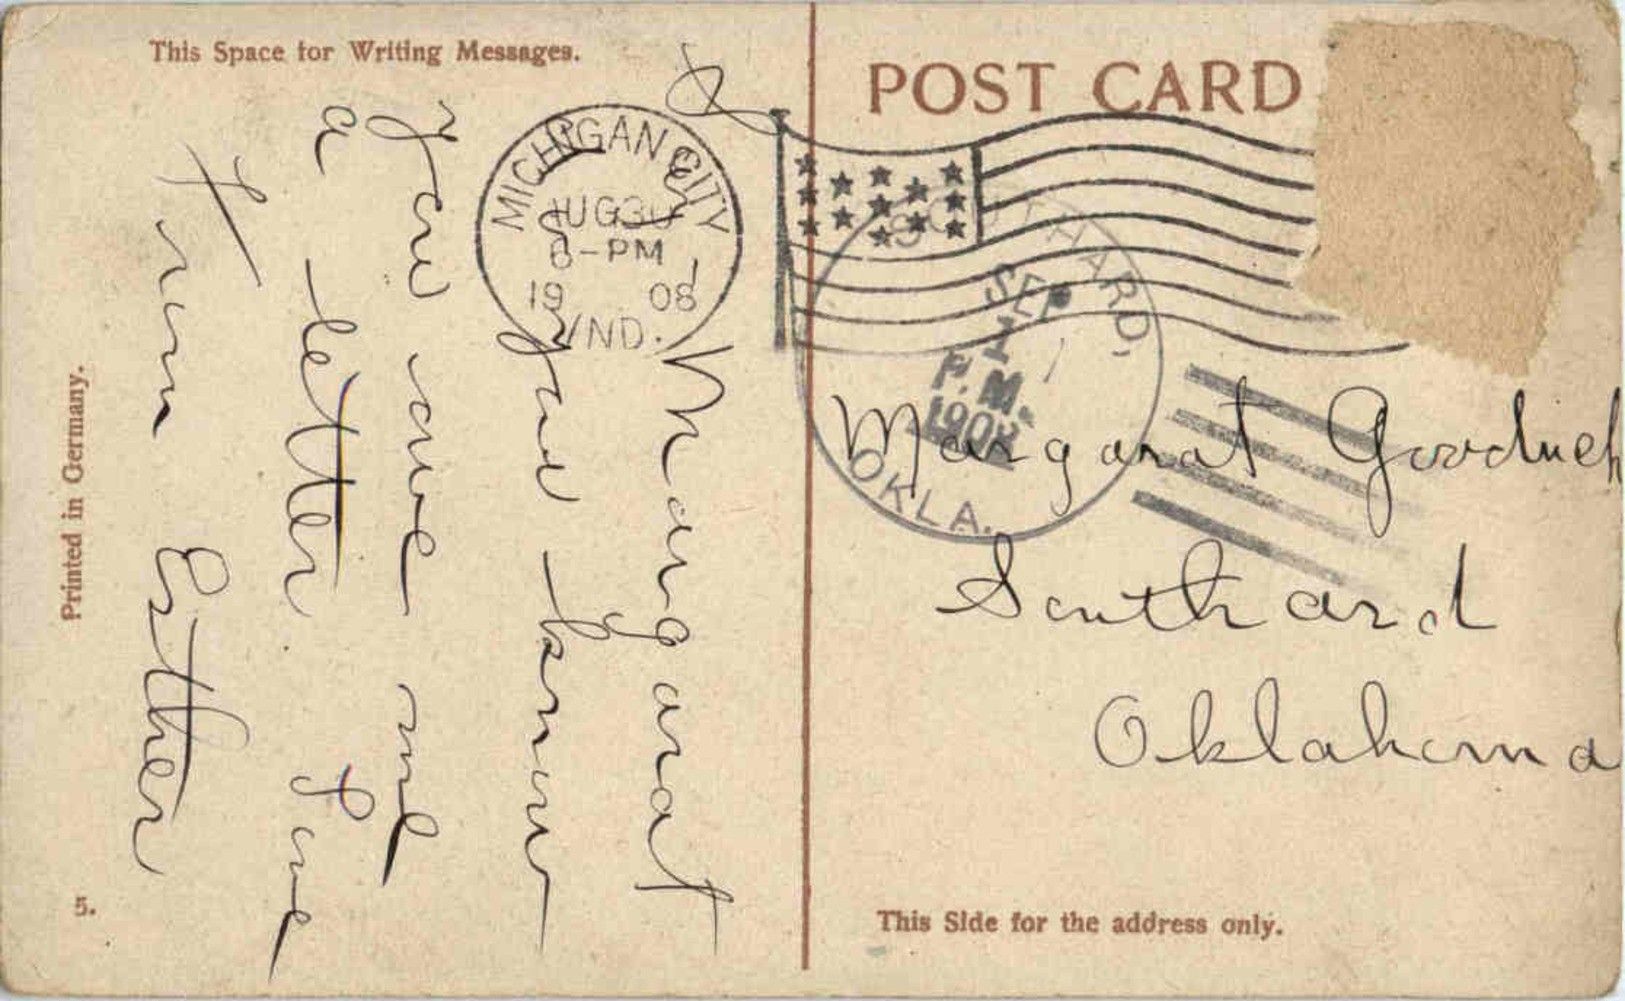 This Space for Writing Messages.
POST CARD
MICHIGAN CITY
AUG 30
6-PM
19 08
IND.
SOUTHARD,
SEP
1
P.M.
1908
OKLA.
Dear Margarat
you know
You owe me
a letter. Love
From Esther
Margarat Goodrich
Southard
Oklahoma
Printed in Germany.
5.
This Side for the address only.